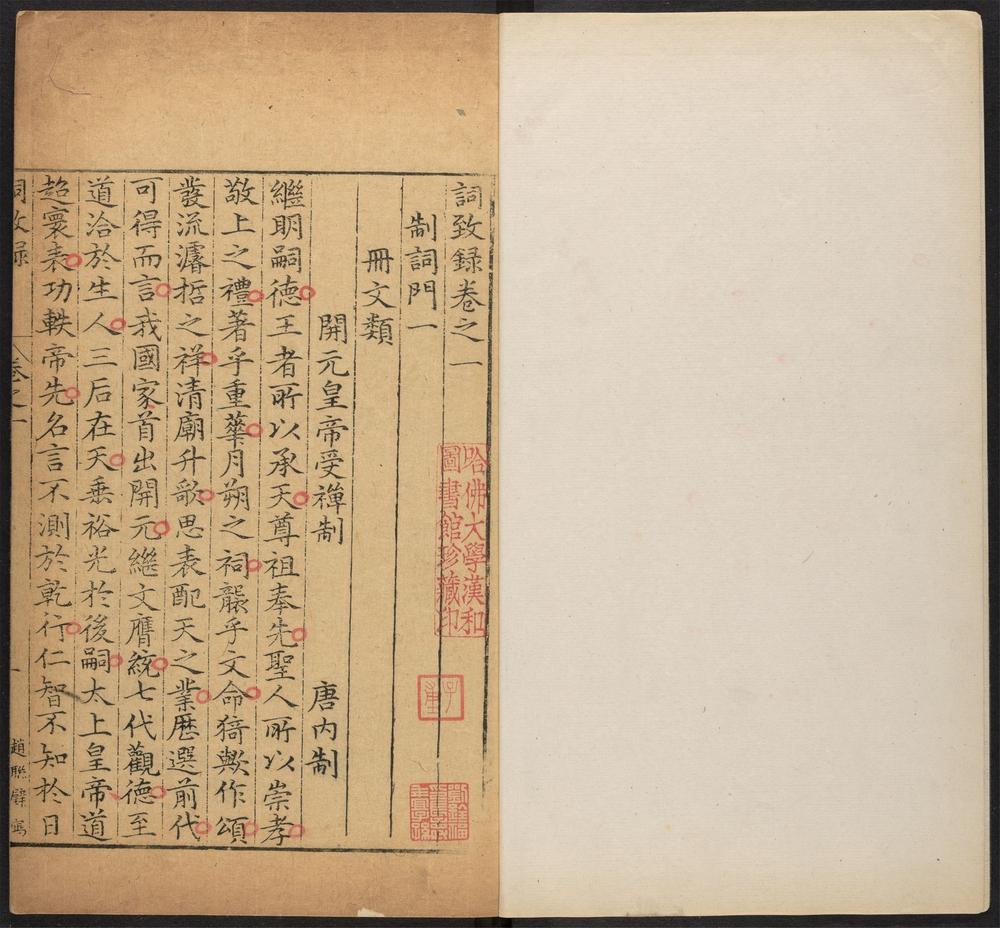 詞致録卷之一
制詞門一
冊文類
開元皇帝受禪制 唐內制
繼明嗣德王者所以承天尊祖奉先聖人所以崇孝
敬上之禮著乎重華月朔之祠龔乎文命猗歟作頌
發流濬哲之祥清廟升歌思表配天之業歷選前代
可得而言我國家首出開元繼文膺統七代觀德至
道洽於生人三后在天垂裕光於後嗣太上皇帝道
超寰表功軼帝先名言不測於乾行仁智不知於日
詞致録 卷之一 一
趙聯璧寫
哈佛大學漢和
圖書館珍藏印